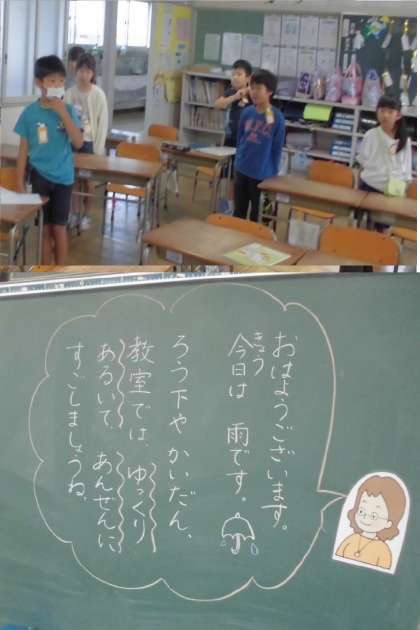 おはようございます。
きょう
今日は 雨です。
ろう下や かいだん、
教室では、ゆっくり
あるいて、あんぜんに
すごしましょうね。